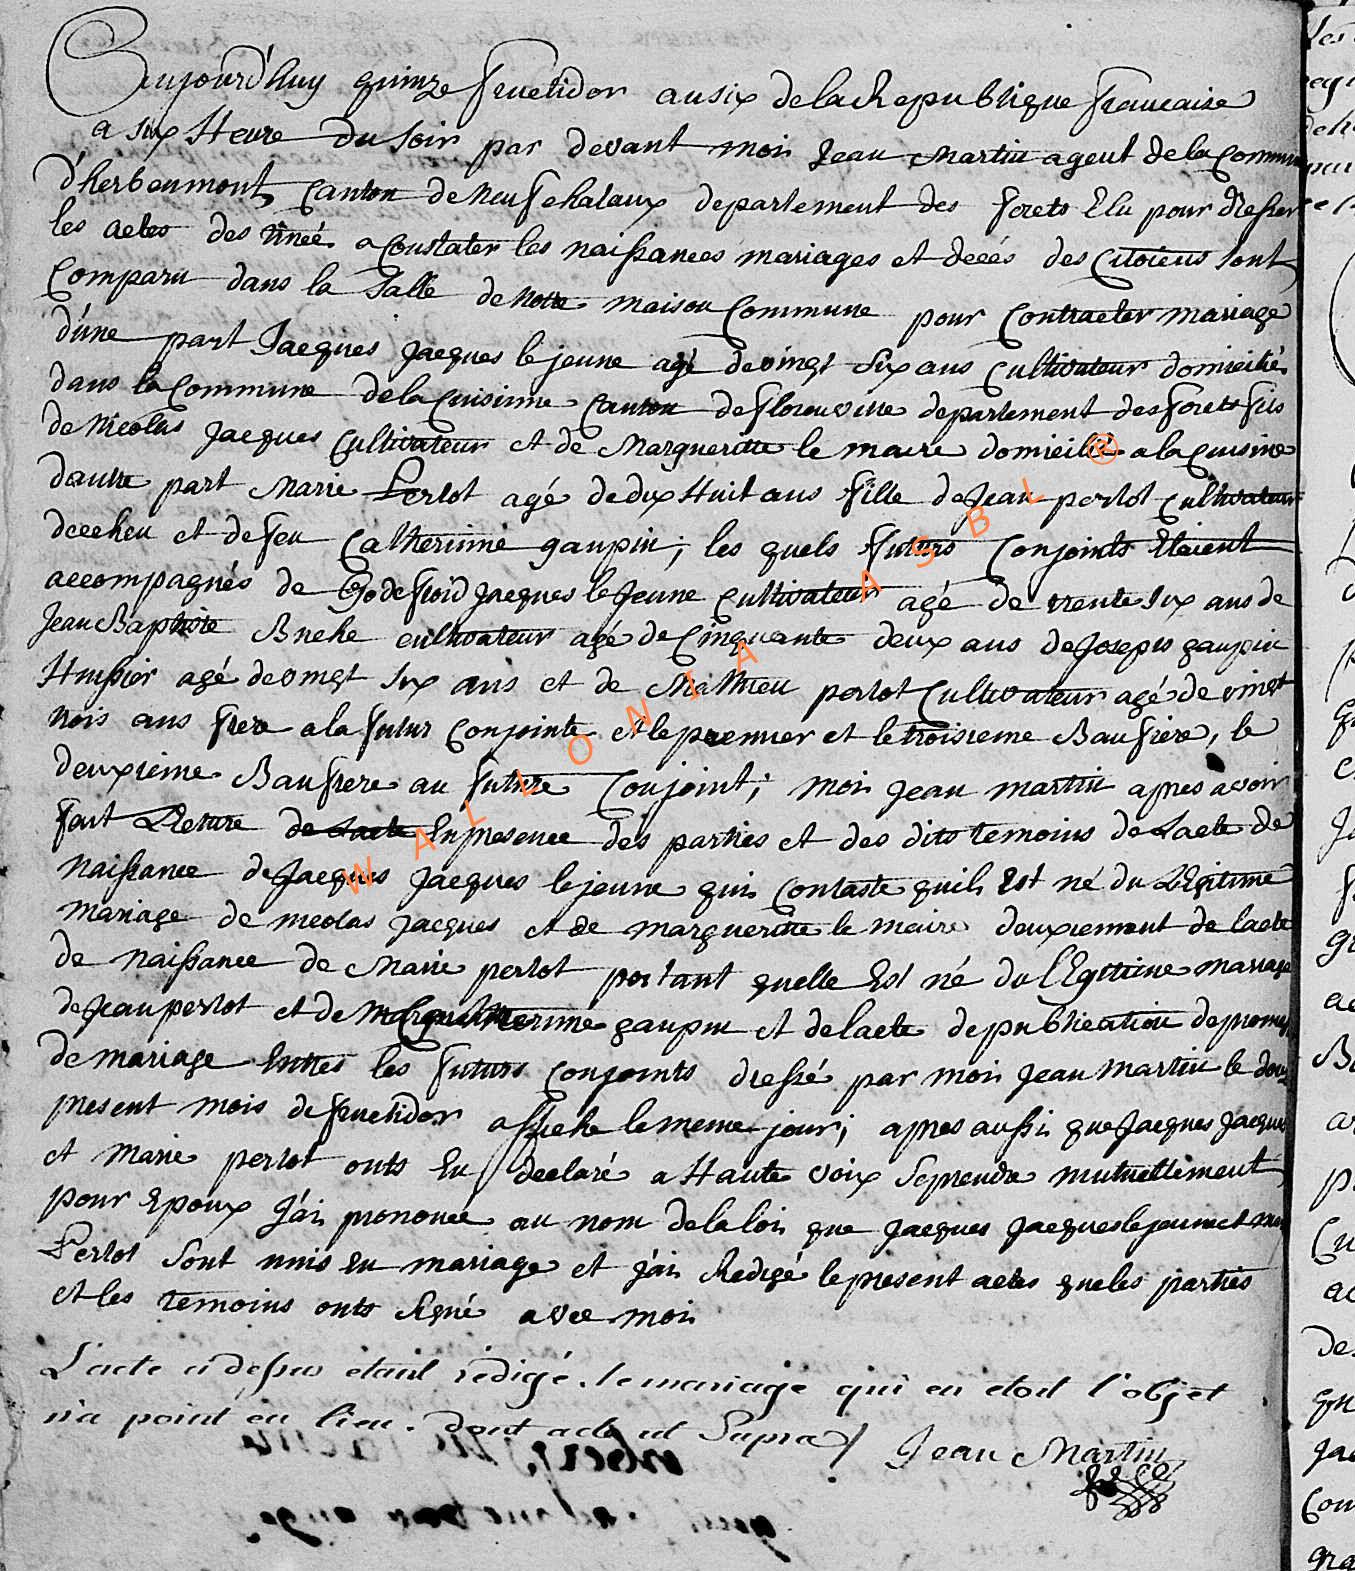 Aujourd'huy quinze fructidor an six de la Republique francaise
a six Heure du soir par devant moi Jean Martin agent de la Commun
d'herbeumont Canton de neufchataux departement des forets Elu pour dresser
les actes des tinée a Constater les naissances mariages et décés des Citoiens sont
Comparu dans la Salle de notre maison Commune pour Contracter mariage
d'une part Jacques Jacques le jeune agé de vingt six ans Cultivateur domicilié
dans la Commune de la Cuisinne Canton de florenville departement des forets fils
de Nicolas Jacques Cultivateur et de Margueritte le maire domicilié a la Cuisine
dautre part Marie Perlot agé de dix Huit ans fille de Jean perlot Cultivateur
et de feu Catherinne gaupin; les quels futurs Conjoints Etaient
accompagnés de Godefroid Jacques le Jeune Cultivateur agé de trente six ans de
Jean Baptiste cultivateur agé de Cinquante deux ans de Joseph gaupin
Huissier agé de vingt six ans et de Mathieu perlot Cultivateur agé de vingt
trois ans frere a la futur Conjointe et le premier et le troisieme Baufrere, le
deuxieme Baufrere au future Conjoint; moi Jean martin apres avoir
fait Lecture de Lacte En presence des parties et des dits temoins de Lacte de
Naissance de Jacques Jacques le jeune qui Contaste quil Est né du Legitime
mariage de nicolas Jacques et de margueritte le maire deuxiement de lacte
de naissance de Marie perlot portant quelle Est né du LEgitime mariage
de Jean perlot et de gaupin et de lacte de publication de promes
de mariage Entres les futurs conjoints dressé par moi Jean Martin le douz
present mois de fructidor affiche le meme jour; apres aussi que Jacques Jacques
et Marie perlot onts Eu declaré a Haute voix Se prendre mutuellement
pour Epoux J'ai prononce au nom de la loi que Jacques Jacques le jeune et mar
Perlot Sont unis En mariage et j'ai Redigé le present actes que les parties
et les temoins onts Signé avec moi
L'acte ci dessus etant rédigé. le mariage qui en etoit l'objet
n'a point eu lieu. dont acte ut Supra
Jean Martin
WALLONIA ASBL ®